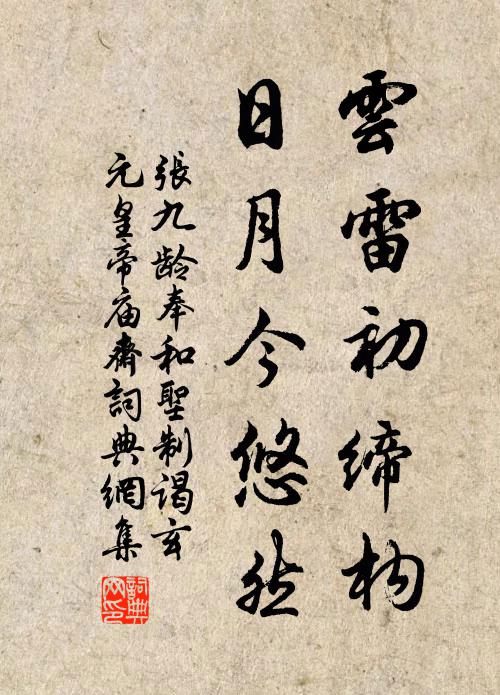 雲雷初締构
日月今悠然
張九龄奉和聖制謁玄
元皇帝庙齋詞典網集
詞典网印